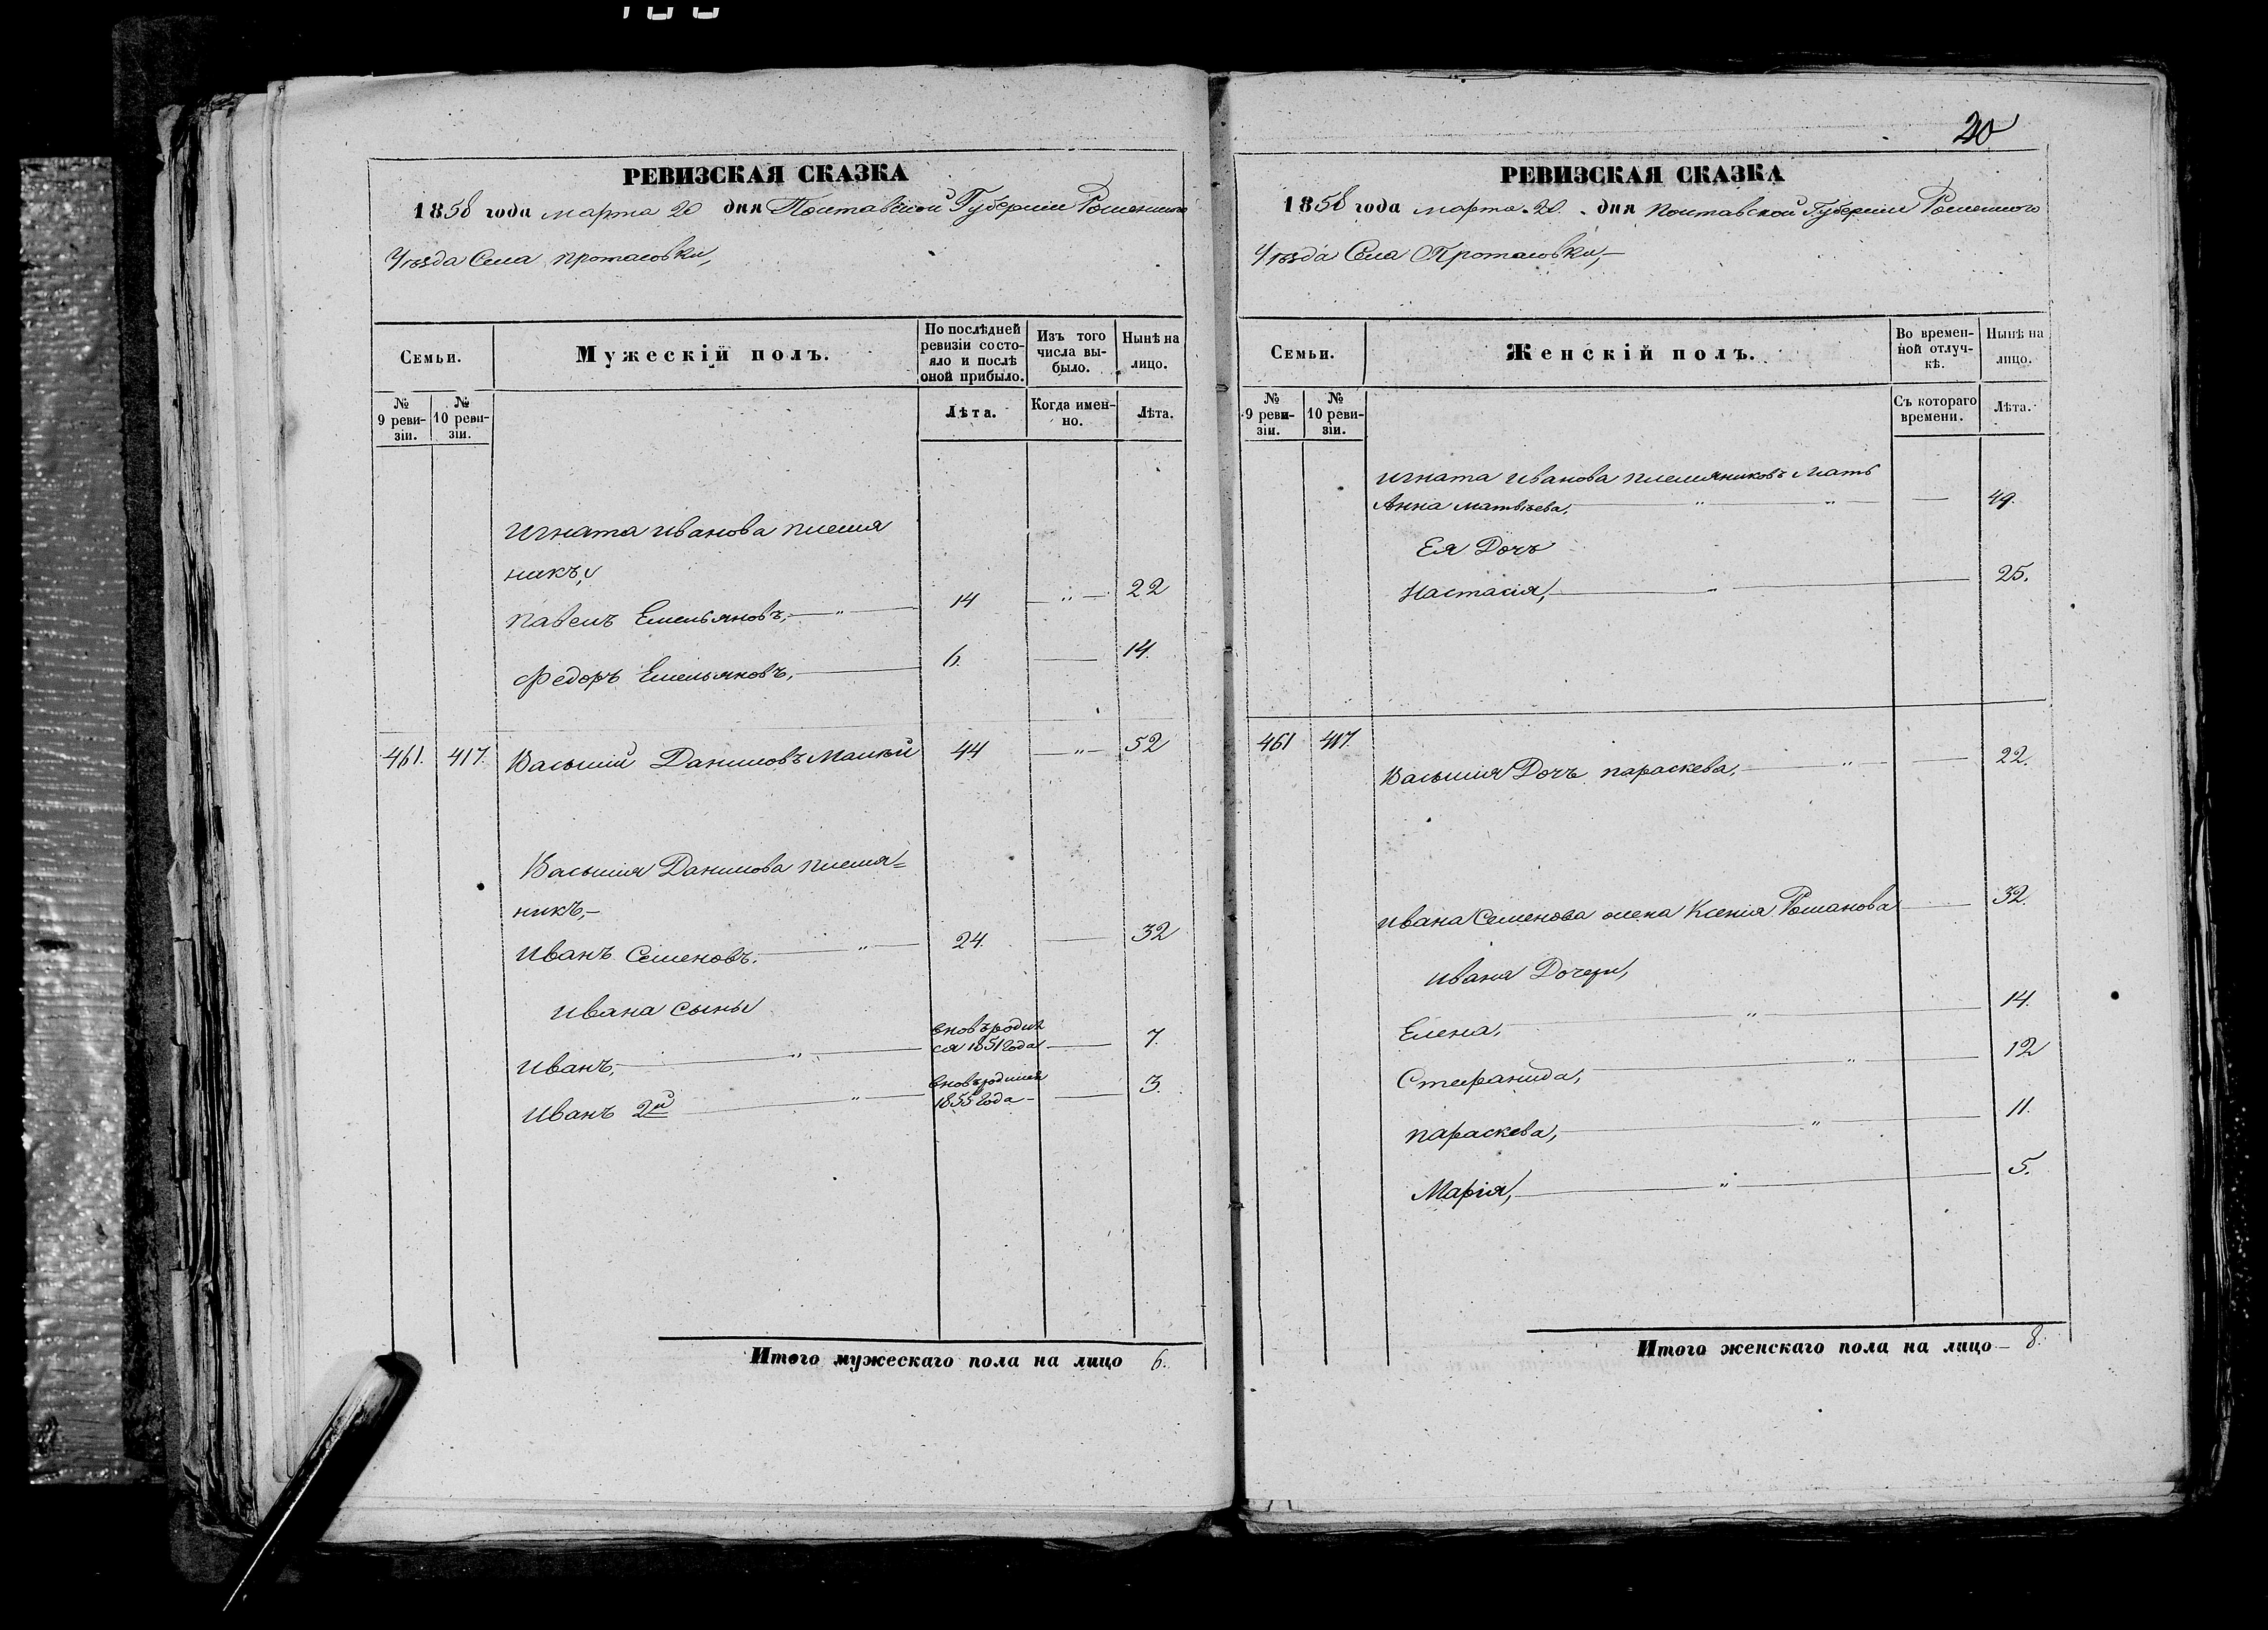 20
РЕВИЗСКАЯ СКАЗКА
1858 года марта 20 дня Полтавской Губерніи Роменскаго
Уѣзда Села Протасовки,
Семьи.
Мужескій полъ.
По послѣдней ревизіи состояло и послѣ оной прибыло.
Изъ того числа выбыло.
Нынѣ на лицо.
№ 9 ревизіи.
№ 10 ревизіи.
Лѣта.
Когда именно.
Лѣта.
Игната Иванова племя
никъ,
Павелъ Емельяновъ, 14 22
Федоръ Емельяновъ, 6. 14.
461. 417. Василій Даниловъ 44 52
Василія Данилова племя=
никъ,
Иванъ Семеновъ. 24. 32
Ивана сыны
Иванъ, вновьродил
ся 1851 года 7.
Иванъ 2й вновьродился
1855 года 3.
Итого мужескаго пола на лицо 6.
РЕВИЗСКАЯ СКАЗКА
1858 года марта 20. дня Полтавской Губерніи Роменского
Уѣзда Села Протасовки,
Семьи.
Женскій полъ.
Во временной отлучкѣ.
Нынѣ на лицо.
№ 9 ревизіи.
№ 10 ревизіи.
Съ котораго времени.
Лѣта.
Игната Иванова племяниковъ Мать
Анна Матвѣева, 49.
Ея Дочь
Настасія, 25.
461 417. Василія Дочь Параскева, 22.
Ивана Семенова жена Ксенія Романова 32.
Ивана Дочери,
Елена, 14.
Стефанида, 12
Параскева, 11.
Марія, 5.
Итого женскаго пола на лицо 8.